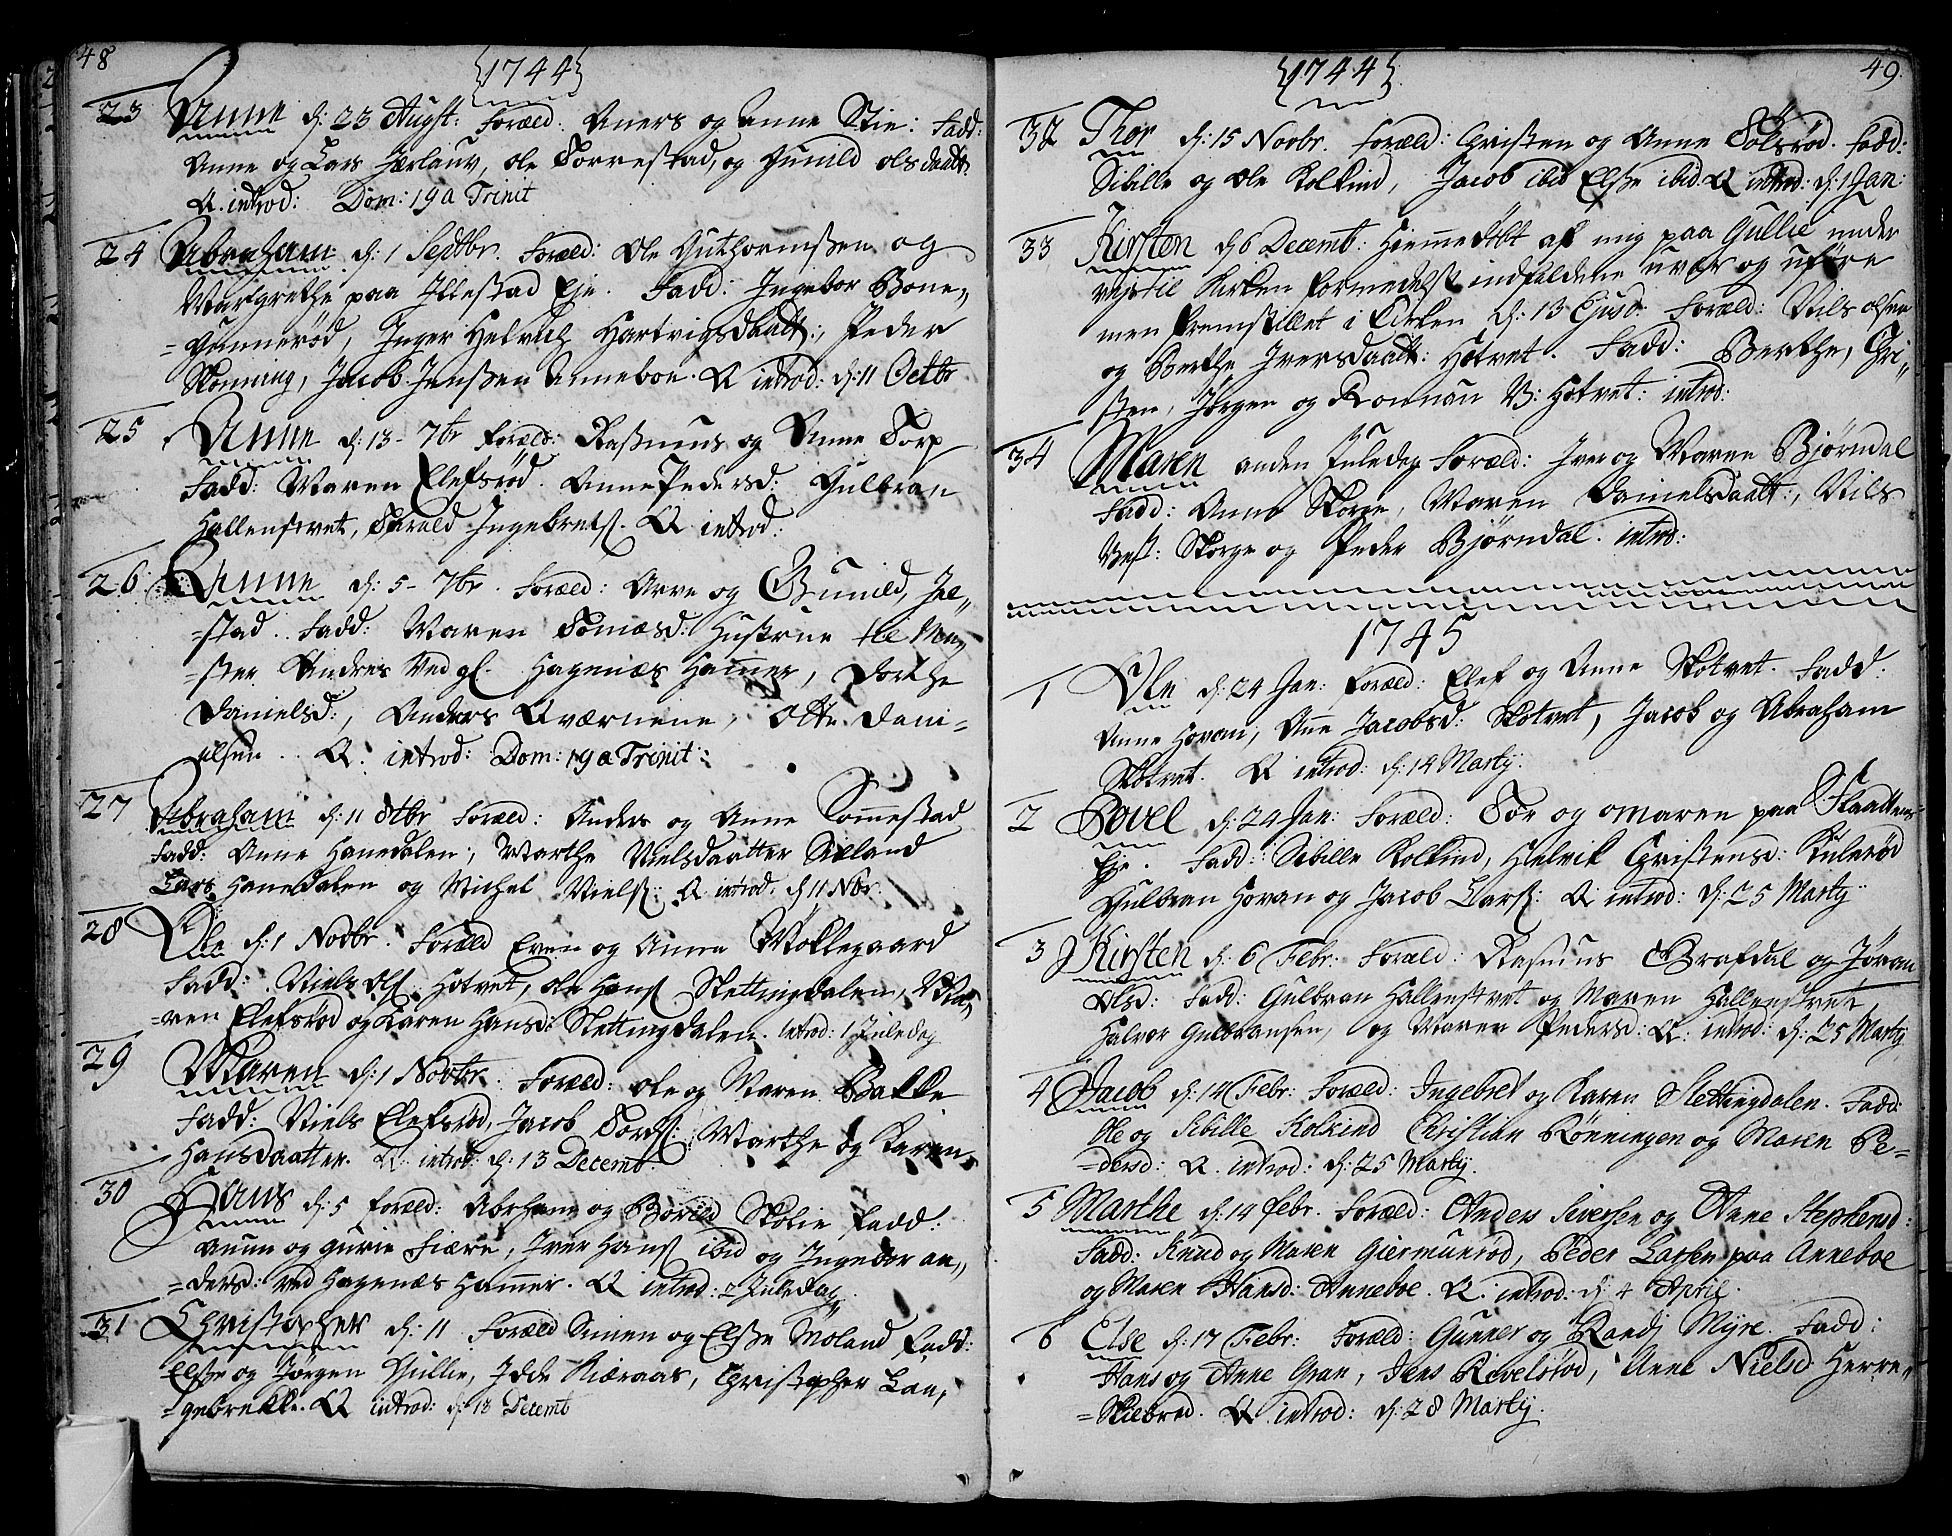 48
{1744}
23 Anne d: 23 Augst: Foræld. Aners og Anne Stie: Fadd:
Anne og Lars Jerlauv, Ole Torrestad, og Gunild Olsdaatt.
Q. introd: Dom: 19 a Trinit
24 Abraham d: 1 Septbr. Foræld: Ole Guthormssen og
Margrethe paa Illestad Eje. Fadd: Ingebor Bone,,
=Gunnerød, Inger Helvich Hartvigsdaatt:, Peder
Skonning, Jacob Jenssen Anneboe. Q introd: d: 11 Octbr
25 Anne d: 13 - 7br Foræld: Rassmus og Anne Torp
Fadd: Maren Elefsrød. Anne Pedersd: Gulbran
Hallenstvet, Harald Ingebretss. Q introd:
26 Anne d: 5 - 7br. Foræld: Arve og Gunild, Jel,,
=stad. Fadd: Maren Tomæsd: Hustrue til Mey
=ster Andres ved gl. Hagenæs Hamer, Dorthe
Danielsd:, Anders Qværnene, Otte Dani=
elsen. Q. introd: Dom: 19 a Trinit:
27 Abraham d: 11 8tbr Foræld: Anders og Anne Tomestad
Fadd: Anne Hanedalen, Marthe Nielsdaatter Siuland
Lars Hanedalen og Michel Nielss: Q introd. d 11 Nbr
28 Ole d: 1 Novbr. Foræld Even og Anne Moklegaard
Fadd: Niels Olss: Hotvet, Ole Hanss Slettingdalen, Ma,,
=ren Elefsrød og Karen Hansd: Slettingdalen. introd: 1 Juledag
29 Maren d: 1 Novbr. Foræld: Ole og Maren Bakke
Fadd: Niels Elefsrød, Jacob Torss: Marthe og Karen
Hansdaatter. Q. introd: d: 13 Decemb.
30 Hans d: 5 Foræld: Abrham og Borild Skolie Fadd:
Anne og Gurie Fiære, Iver Hanss ibid og Ingebor An,,
=dersd: ved Hagenæs Hamer. Q introd: 2 Juledag
31 Christopher d: 11 Foræld Simen og Elsse Moland Fadd:
Elsse og Jørgen Gullie, Idde Kiæraas, Christopher Lan,,
=gebrekke. Q introd: d: 13 Decemb
49
{1744}
32 Thor d: 15 Novbr. Foræld: Christen og Anne Tolsrød. Fadd:
Sibille og Ole Kolkind, Jacob ibid Elsse ibid. Q introd: d: 1 Jan:
33 Kirsten d 6 Decemb: Hiemedøbt af mig paa Gullie under
vejs til Kirken formedelst indfaldene uvejr og uføre
men fremstillet i Kirken d: 13 Ejusd. Foræld: Nils Olsen
og Berthe Iversdaatt: Hotvet. Fadd: Berthe, Chri,,
sten, Jørgen og Romnan N: Hotvet: introd:
34 Maren anden Juledag Foræld: Iver og Maren Bjørndal
Fadd: Anne Skorge, Maren Danielsdaatt:, Nils
Vest: Skorge og Peder Bjørndal. introd:
1745
1 Ole d: 24 Jan: Foræld: Elef og Anne Skotvet. Fadd:
Anne Hovan, Ane Jacobsd: Skotvet, Jacob og Abraham
Skotvet. Q introd: d: 14 Martij.
2 Povel d: 24 Jan: Foræld: Tor og Maren paa Skaatten
Eje. Fadd: Sibille Kolkind, Helvik Christensd: Kulerød
Gulbran Hovan og Jacob Larss: Q introd: d: 25 Martij
3 Kirsten d: 6 Febr: Foræld: Rasmus Grafdal og Jøran
Olsd: Fadd: Gulbran Hallenstvet og Maren Hallenstvet,
Halvor Gulbransen, og Maren Pedersd: Q. introd: d: 25 Martij
4 Jacob d: 14 Febr: Foræld: Ingebret og Karen Slettingdalen. Fadd:
Ole og Sibille Kolkind Christian Rønningen og Maren Pe=
=dersd: Q. introd: d: 25 Martij.
5 Marthe d: 14 febr. Foræld: Anders Siversen og Anne Stephensd:
Fadd: Knud og Maren Giermunrød, Peder Larsen paa Anneboe
og Maren Hansd: Anneboe. Q. introd: d: 4 April.
6 Else d: 17 Febr: Foræld: Gunner og Randj Myre. Fadd:
Hans og Anne Gran, Jens Revelsrød, Anne Nielsd: Herre,,
=Skiebred. Q introd: d: 28 Martij.